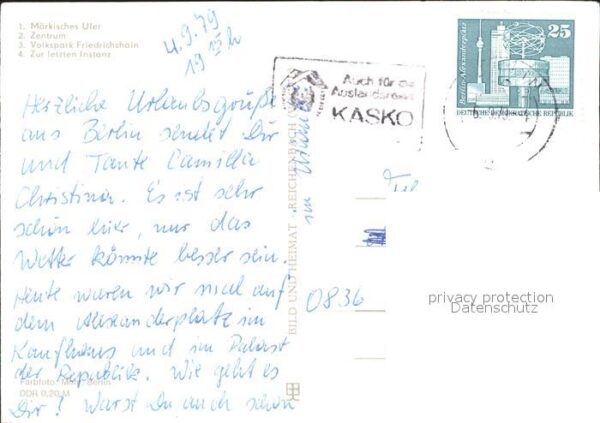 1. Märkisches Ufer
2. Zentrum
3. Volkspark Friedrichshain
4. Zur letzten Instanz
4.9.79
Herzliche Urlaubsgrüße
aus Berlin sendet Dir
und Tante Camilla
Christina. Es ist sehr
schön hier, nur das
Wetter könnte besser sein.
Heute waren wir mal auf
dem Alexanderplatz im
Kaufhaus und im Palast
der Republik. Wie geht es
Dir? Warst Du auch schon
im Urlaub
Farbfoto: Berlin
DDR 0,20 M
BILD UND HEIMAT REICHENBACH
Auch für die
Auslandsreise
KASKO
Berlin, Alexanderplatz
25
DEUTSCHE DEMOKRATISCHE REPUBLIK
0836
privacy protection
Datenschutz